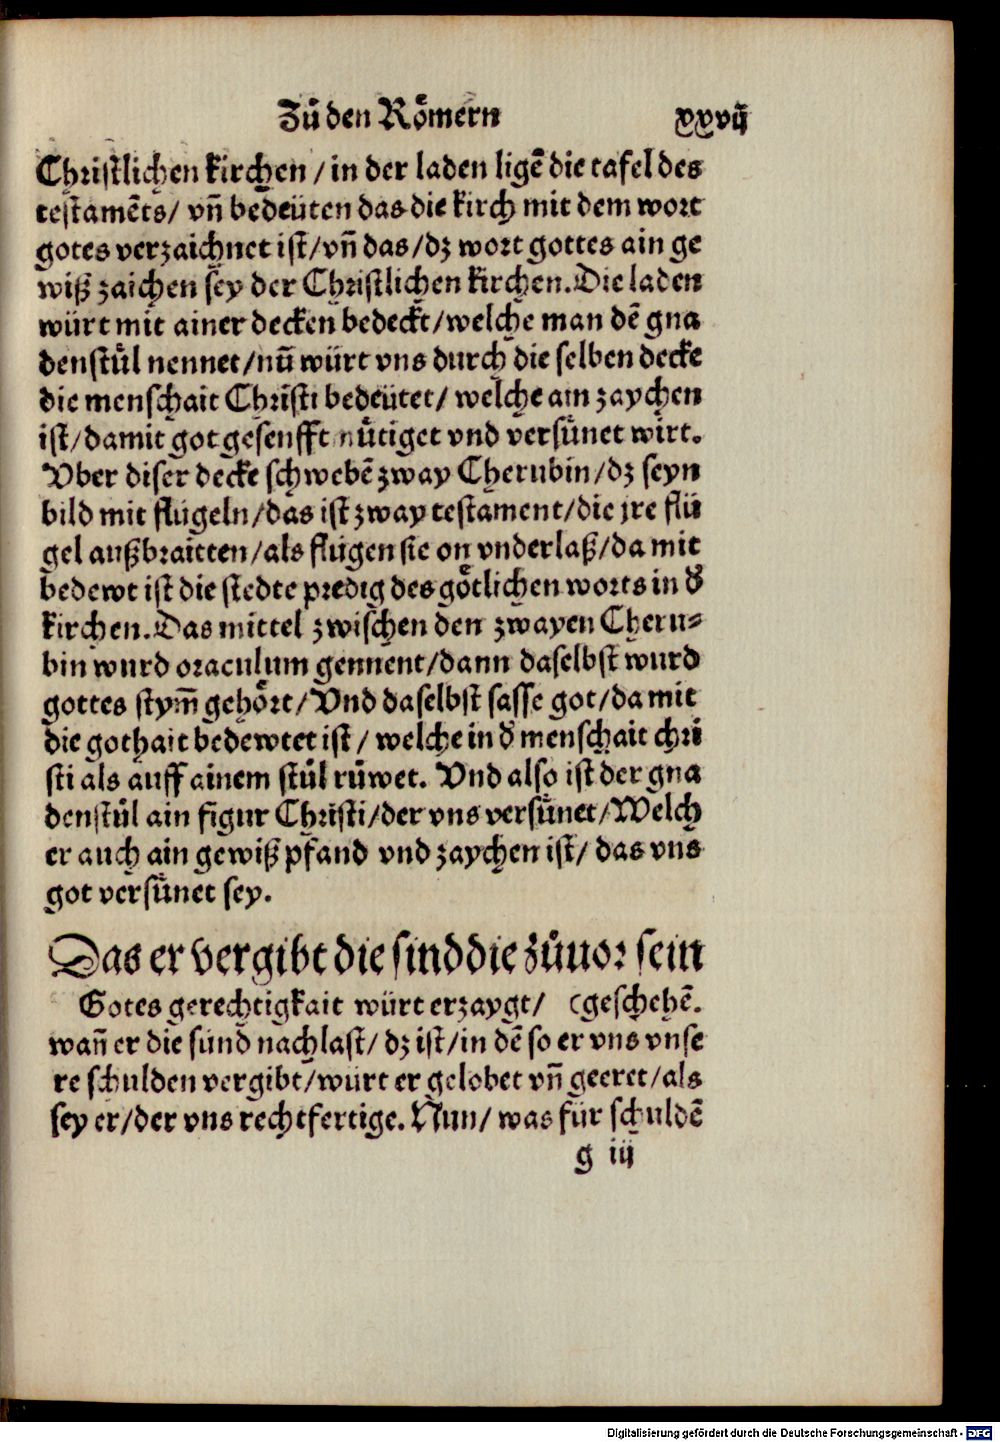 Zů den Rômern xxvij
Christlichen kirchen / in der laden ligē die tafel des
testamēts / vn̄ bedeüten das die kirch mit dem wort
gotes verzaichnet ist / vn̄ das / dz wort gottes ain ge
wiß zaichen sey der Christlichen kirchen. Die laden
würt mit ainer decken bedeckt / welche man dē gna
denstůl nennet / nū würt vns durch die selben decke
die menschait Christi bedeütet / welche ain zaychen
ist / damit got gesenfft nůtiget vnd versůnet wirt.
Vber diser decke schwebē zway Cherubin / dz seyn
bild mit flügeln / das ist zway testament / die jre flü
gel außbraitten / als flügen sie on vnderlaß / da mit
bedewt ist die stedte predig des gôtlichen worts in d̓
kirchen. Das mittel zwischen den zwayen Cheru⸗
bin wurd oraculum gennent / dann daselbst wurd
gottes stym̄ gehôrt / Vnd daselbst sasse got / da mit
die gothait bedewtet ist / welche in d̓ menschait chri
sti als auff ainem stůl růwet. Vnd also ist der gna
denstůl ain figur Christi / der vns versůnet / Welch
er auch ain gewiß pfand vnd zaychen ist / das vns
got versůnet sey.
Das er vergibt die sind die zůuor sein
Gotes gerechtigkait würt erzaygt / (geschehē.
wan̄ er die sünd nachlast / dz ist / in dē so er vns vnse
re schulden vergibt / würt er gelobet vn̄ geeret / als
sey er / der vns rechtfertige. Nun / was für schuldē
g iij
Digitalisierung gefördert durch die Deutsche Forschungsgemeinschaft - DFG